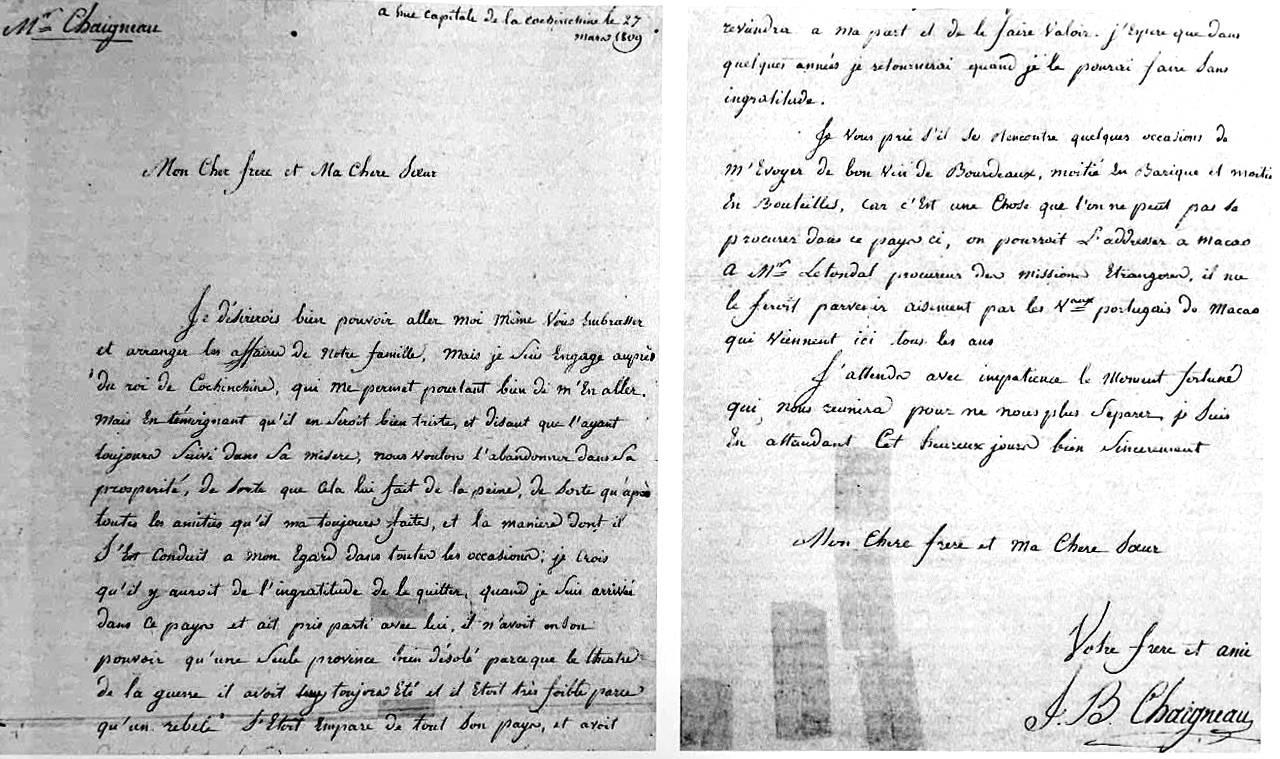 Mr Chaigneau
a hue capitale de la cochinchine le 27
mars 1809
Mon Cher frere et Ma Chere Sœur
Je désirerois bien pouvoir aller moi Même Vous Embrasser
et arranger les affaires de Notre famille, Mais je Suis Engagé auprès
du roi de Cochinchine, qui me permet pourtant bien de m'En aller.
Mais En témoignant qu'il en Seroit bien triste, et disant que l'ayant
toujours Suivi dans Sa misere, nous voulons l'abandonner dans Sa
prosperité, de Sorte que Cela lui fait de la peine, de Sorte qu'après
toutes les amitiés qu'il ma toujours faites, et la maniere dont il
S'Est Conduit a mon Egard dans toutes les occasions; je Crois
qu'il y auroit de l'ingratitude de le quitter, quand je Suis arrivé
dans Ce pays et ait pris parti avec lui, il n'avoit en Son
pouvoir qu'une Seule province bien désolé parceque le théatre
de la guerre il avoit toujours Eté et il Etoit très foible parce
qu'un rebele S'Etoit Emparé de tout Son pays, et avoit
reviendra a ma part et de le faire Valoir. j'Espere que dans
quelques années je retournerai quand je le pourai faire Sans
ingratitude.
Je Vous prie S'il Se Rencontre quelques occasions de
m'Evoyer de bon Vin de Bourdeaux, moitié En Barique et moitié
En Bouteilles, Car c'Est une Chose que l'on ne peut pas Se
procurer dans ce pays ci, on pourroit L'addresser à Macao
A Mr Letondal procureur des missions Etrangeres, il me
le feroit parvenir aisement par les Vaux portugais de Macao
qui Viennent ici tous les ans
J'attends avec impatience le Moment fortuné
qui nous reunira pour ne nous plus Separer, je Suis
En attendant Cet heureux jours bien Sincerement
Mon Chere frere et ma Chere Sœur
Votre frere et ami
J. B. Chaigneau